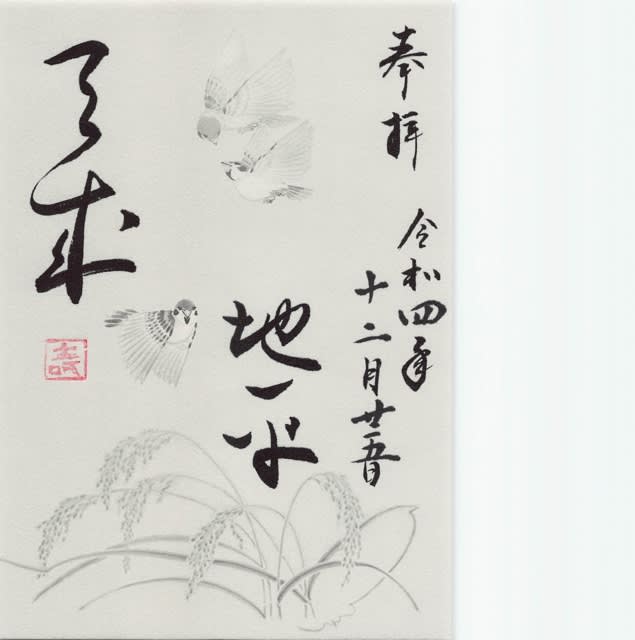 奉拝
令和四年
十二月廿五日
地平
天成